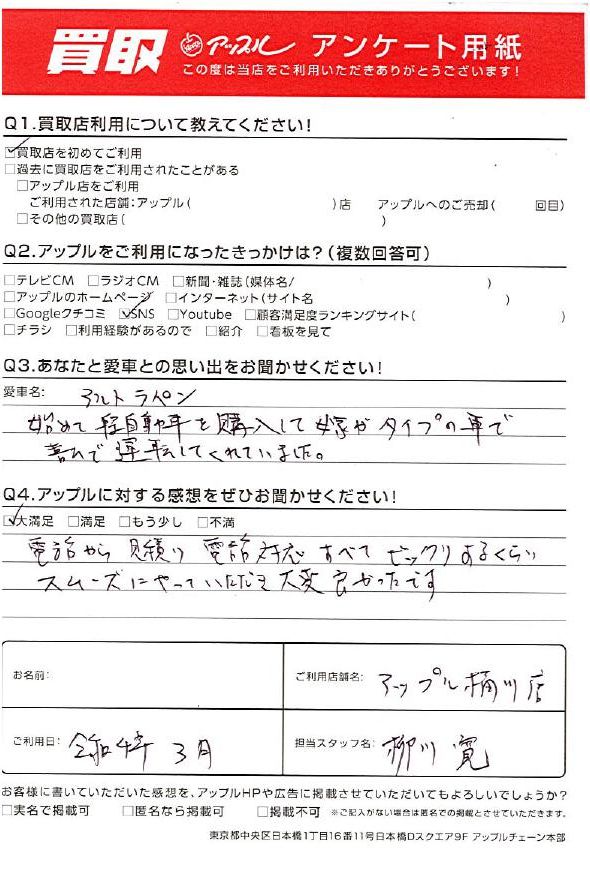 買取 アップル アンケート用紙
この度は当店をご利用いただきありがとうございます!
Q1.買取店利用について教えてください!
☑買取店を初めてご利用
□過去に買取店をご利用されたことがある
□アップル店をご利用
ご利用された店舗:アップル( )店 アップルへのご売却( 回目)
□その他の買取店( )
Q2.アップルをご利用になったきっかけは?(複数回答可)
□テレビCM □ラジオCM □新聞・雑誌(媒体名/ )
□アップルのホームページ □インターネット(サイト名 )
□Googleクチコミ ☑SNS □Youtube □顧客満足度ランキングサイト( )
□チラシ □利用経験があるので □紹介 □看板を見て
Q3.あなたと愛車との思い出をお聞かせください!
愛車名: アルトラペン
始めて軽自動車を購入して嫁がタイプの車で
喜んで運転してくれていました。
Q4.アップルに対する感想をぜひお聞かせください!
☑大満足 □満足 □もう少し □不満
電話から見積り電話対応すべてビックリするくらい
スムーズにやっていただき大変良かったです
お名前:
ご利用店舗名: アップル桶川店
ご利用日: 令和4年3月
担当スタッフ名: 柳川 寛
お客様に書いていただいた感想を、アップルHPや広告に掲載させていただいてもよろしいでしょうか?
□実名で掲載可 □匿名なら掲載可 □掲載不可 ※ご記入がない場合は匿名での掲載とさせていただきます。
東京都中央区日本橋1丁目16番11号日本橋Dスクエア9F アップルチェーン本部